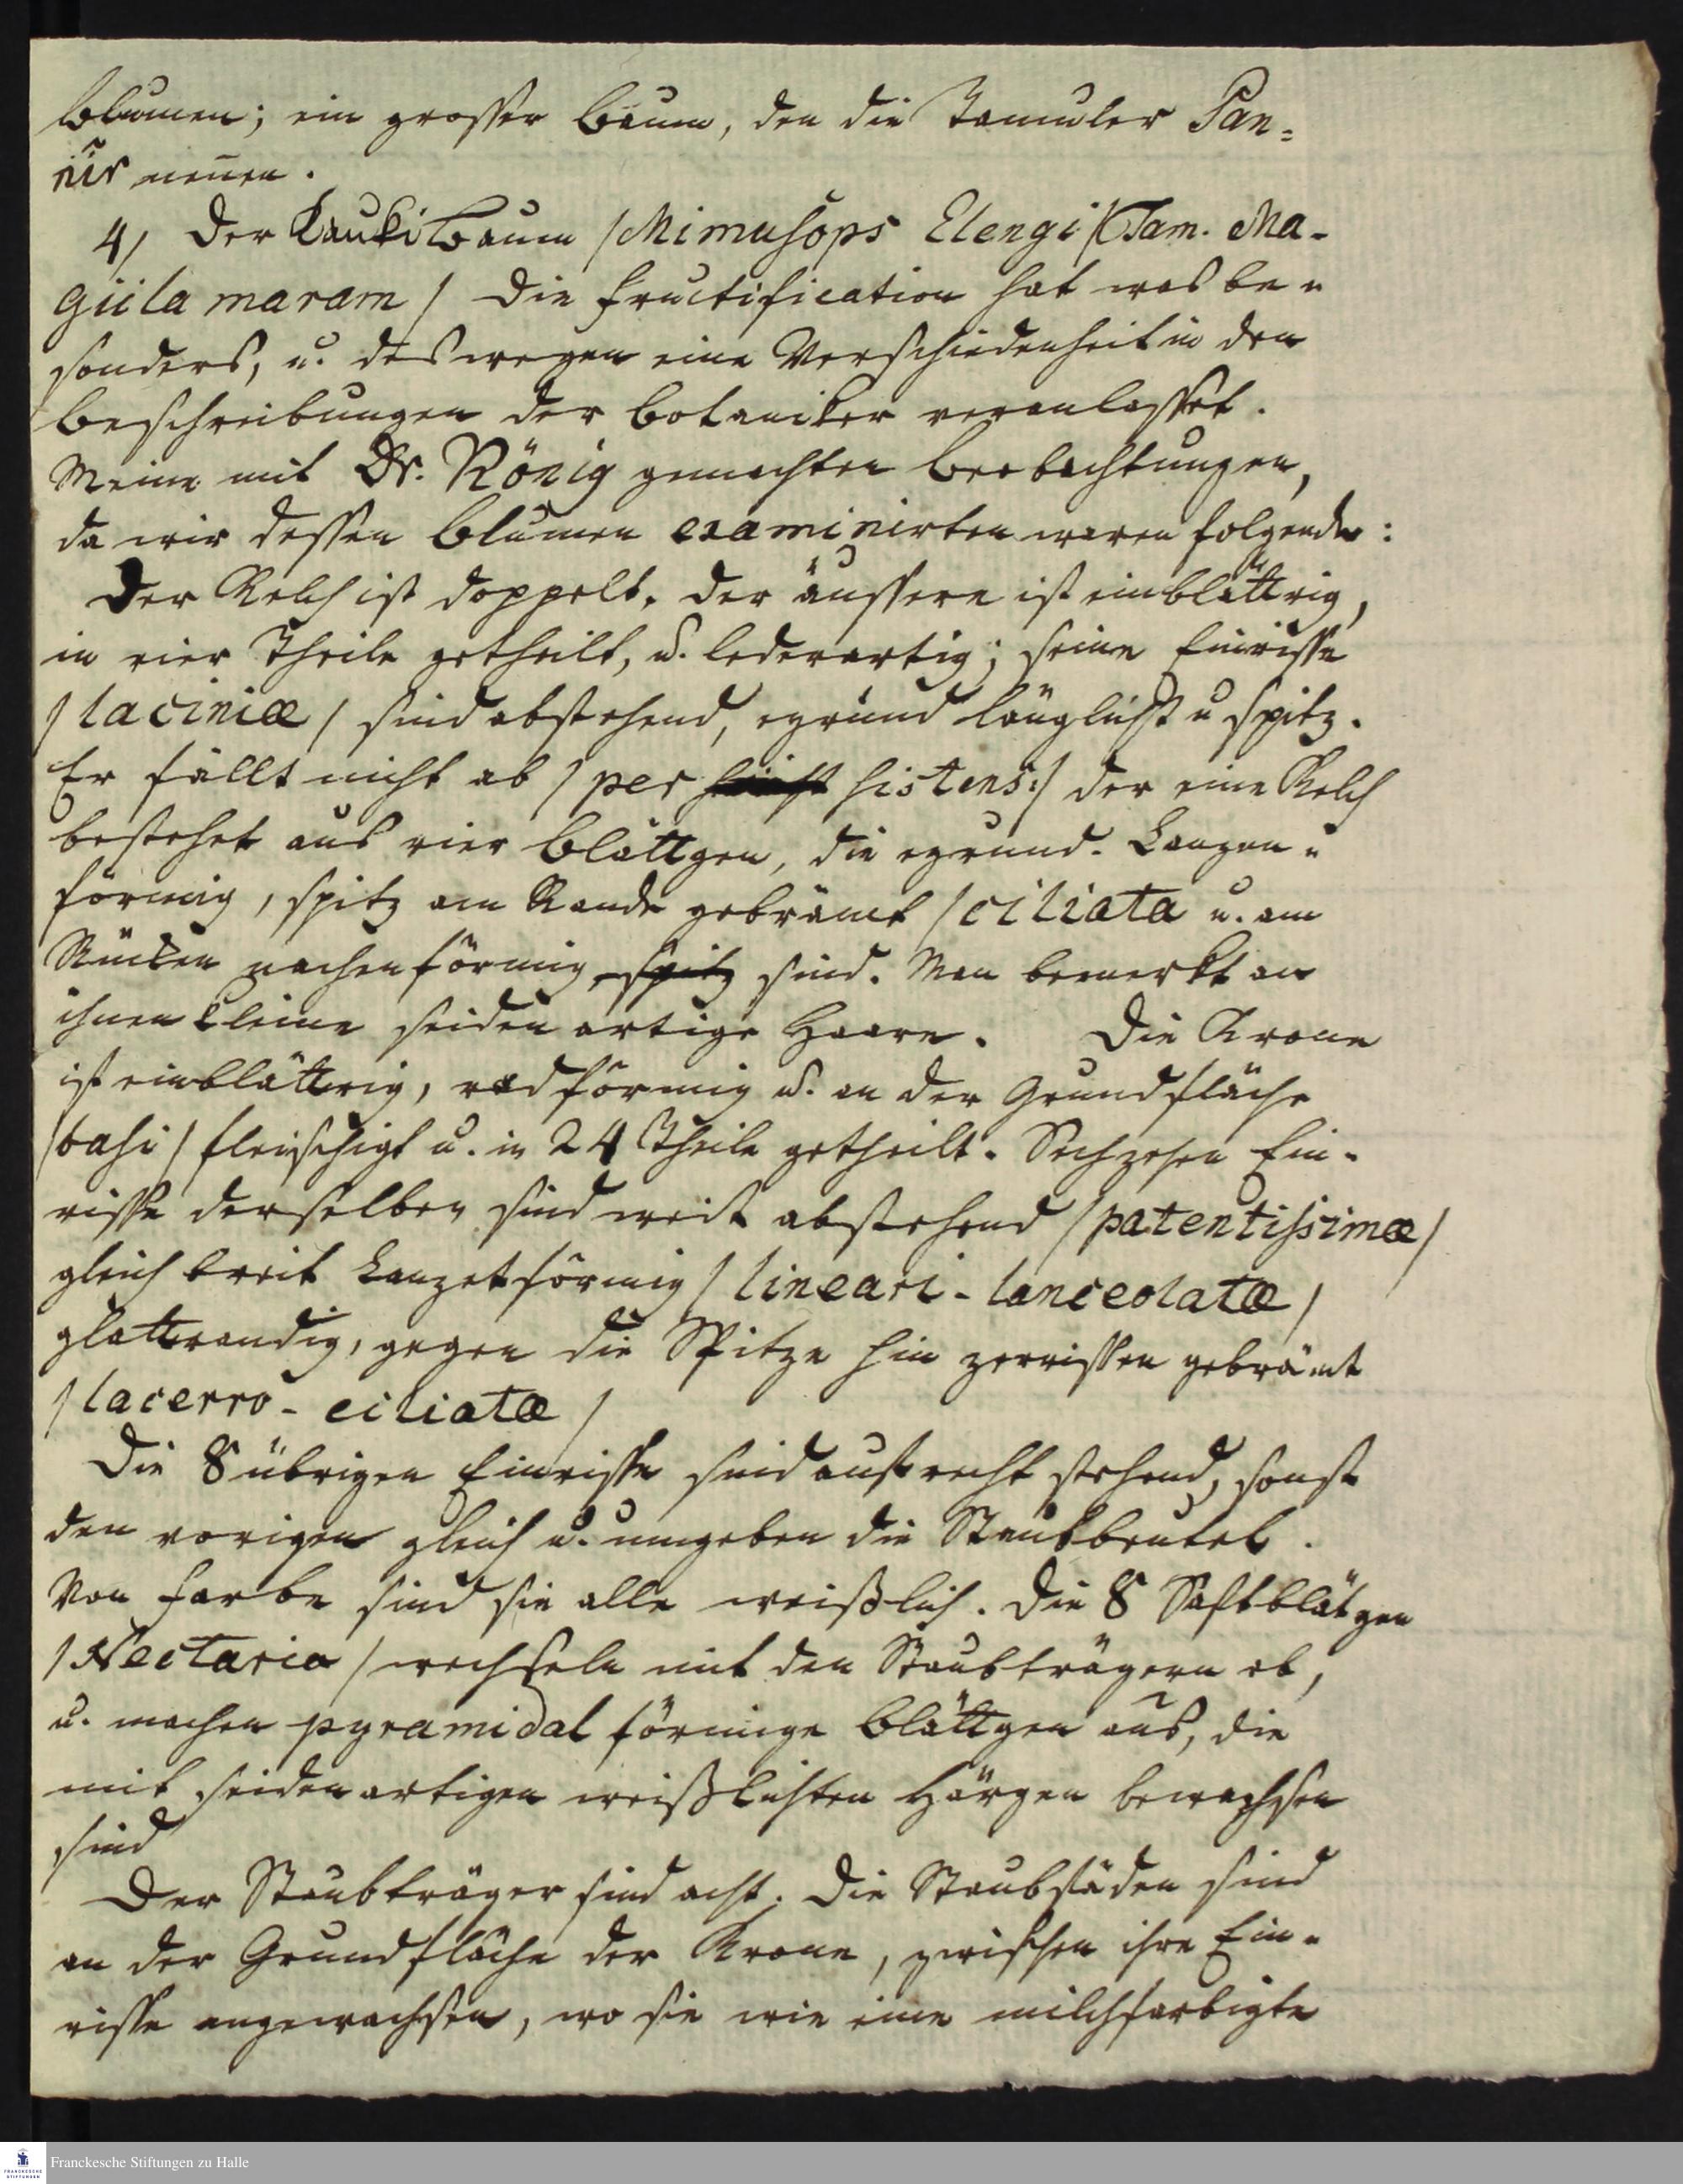 Blumen; ein grosser Baum, den die Tamuler Pan-
nir nenen.
4/ Der KaukiBaum /Mimusops Elengi/ Tam. Ma-
giila maram/ Die Fructification hat was be-
sonders, u. deswegen eine Verschiedenheit in den
Beschreibungen der Botaniker veranlasset.
Meine mit Dr. König gemachten Beobachtungen,
da wir dessen Blumen examinirten waren folgende:
Der Kelch ist doppelt. Der äussere ist einblättrig,
in vier Theile getheilt, u. lederartig; seine Einrisse
/laciniæ/ sind abstehend, eyrund länglicht u spitz.
Er fällt nicht ab /per sistens:/ der eine Kelch
bestehet aus vier Blättgen, die eyrund. Lanzen-
förmig, spitz am Rande gebrämt /ciliata u. am
Rücken nachenförmig, spitz sind. Man bemerkt an
ihnen kleine seidenartige Haare. Die Krone
ist einblättrig, radförmig u. an der Grundfläche
/basi/ fleischigt u. in 24 Theile getheilt. Sechzehen Ein-
risse derselben sind weit abstehend /patentissimæ/
gleich breit Lanzetförmig /lineari-lanceolatæ/
glattrandig, gegen die Spitze hin zerrissen gebrämt
/lacerro-ciliatæ/
Die 8 übrigen Einrisse sind aufrecht stehend, sonst
den vorigen gleich u. umgeben die Staubbeutel.
Von Farbe sind sie alle weißlich. Die 8 Saftblätgen
/Nectaria/ wechseln mit den Staubträgern ab,
u. machen pyramidal förmige Blättgen aus, die
mit seidenartigen weißlichten Härgen bewachsen
sind
Der Staubträger sind acht. Die Staubfäden sind
an der Grundfläche der Krone, zwischen ihre Ein-
risse angewachsen, wo sie wie eine milchfarbigte
Franckesche Stiftungen zu Halle